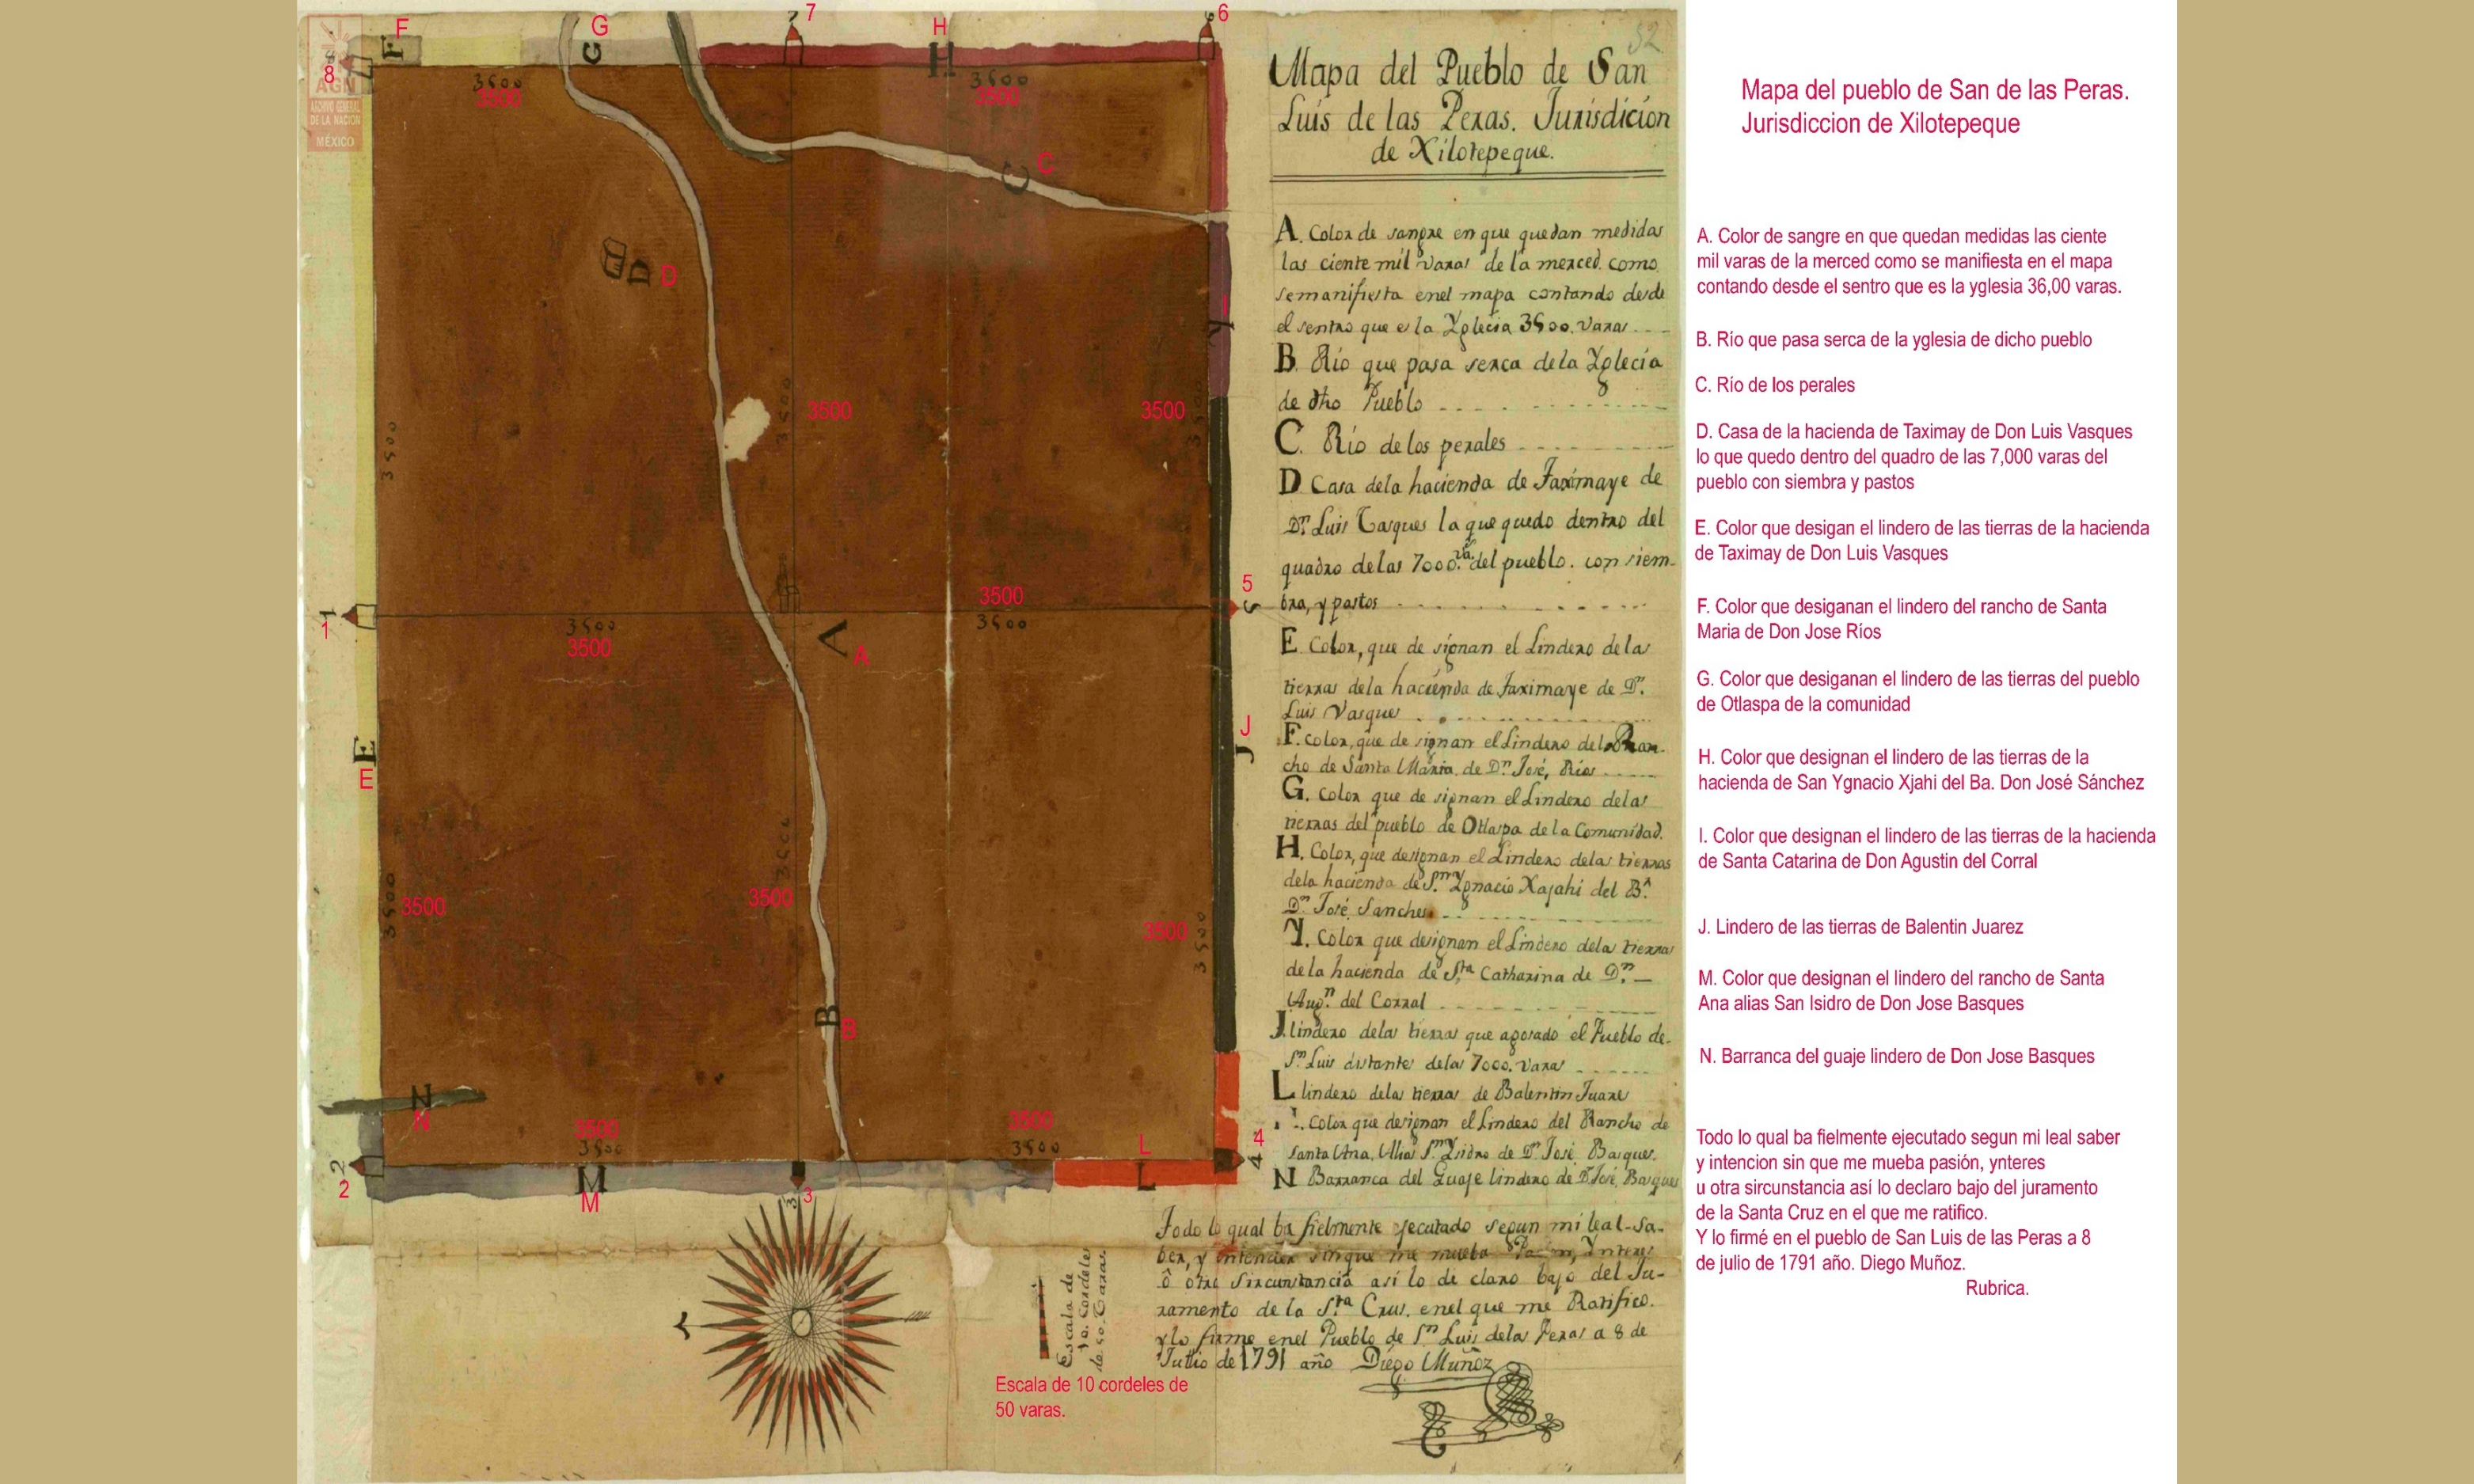 F
G
7
H
6
F
G
7
H
6
8
8
AGN
ARCHIVO GENERAL
DE LA NACION
MÉXICO
3500
3500
3500
3500
C
C
D
D
I
Y
3500
3500
3500
3500
3500
3500
1
1
3500
3500
3500
5
5
3500
A
A
E
E
J
J
3500
3500
3500
3500
3500
3500
B
B
N
N
3500
3500
3500
3500
L
L
4
4
2
2
M
M
3
3
Escala de
10. Cordeles
de 50. Varas.
Escala de 10 cordeles de
50 varas.
52
Mapa del Pueblo de San
Luis de las Peras. Jurisdicion
de Xilotepeque.
A. Color de sangre en que quedan medidas
las ciente mil varas de la merced. como
semanifiesta enel mapa contando desde
el sentro que es la Yglecia 3500. varas
B. Río que pasa serca dela Yglecia
de dho Pueblo
C. Río de los perales
D Casa dela hacienda de Taximaye de
Dn. Luis Vasques la que quedo dentro del
quadro delas 7000. vas. del pueblo. con siem-
bra, y pastos
E Color, que de signan el Lindero dela
tierras dela hacienda de Taximaye de Dn.
Luis Vasques
F. color, que de signan el Lindero del Ran-
cho de Santa Maria de Dn. José, Rios
G. Color que de signan el Lindero delas
tierras del pueblo de Otlaspa de la Comunidad.
H. Color, que designan el Lindero delas tierras
dela hacienda de Sn. Ygnacio Xajahi del Br.
Dn. José Sanches
Y. Color que designan el Lindero dela tierras
de la hacienda de Sta. Catharina de Dn.
Augn. del Corral
J. lindero delas tierras que agosado el Pueblo de
Sn. Luis distante delas 7000. varas
L lindero delas tierras de Balentin Juare
Color que designan el Lindero del Rancho de
Santa Ana, Alias Sn. Ysidro de Dn. José Basques.
N Barranca del Guaje lindero de Dn. José, Basques
Todo lo qual ba fielmente ejecutado segun mi leal sa-
ber, y intencion sinque me mueba Pasion, Ynteres
ô otra Sircunstancia así lo de claro bajo del Ju-
ramento de la Sta. Crus. enel que me Ratifico.
y lo firme enel Pueblo de Sn. Luis delas Peras a 8 de
Jullio de 1791 año Diego Muñoz
Mapa del pueblo de San de las Peras.
Jurisdiccion de Xilotepeque
A. Color de sangre en que quedan medidas las ciente
mil varas de la merced como se manifiesta en el mapa
contando desde el sentro que es la yglesia 36,00 varas.
B. Río que pasa serca de la yglesia de dicho pueblo
C. Río de los perales
D. Casa de la hacienda de Taximay de Don Luis Vasques
lo que quedo dentro del quadro de las 7,000 varas del
pueblo con siembra y pastos
E. Color que desigan el lindero de las tierras de la hacienda
de Taximay de Don Luis Vasques
F. Color que desiganan el lindero del rancho de Santa
Maria de Don Jose Ríos
G. Color que desiganan el lindero de las tierras del pueblo
de Otlaspa de la comunidad
H. Color que designan el lindero de las tierras de la
hacienda de San Ygnacio Xjahi del Ba. Don José Sánchez
I. Color que designan el lindero de las tierras de la hacienda
de Santa Catarina de Don Agustin del Corral
J. Lindero de las tierras de Balentin Juarez
M. Color que designan el lindero del rancho de Santa
Ana alias San Isidro de Don Jose Basques
N. Barranca del guaje lindero de Don Jose Basques
Todo lo qual ba fielmente ejecutado segun mi leal saber
y intencion sin que me mueba pasión, ynteres
u otra sircunstancia así lo declaro bajo del juramento
de la Santa Cruz en el que me ratifico.
Y lo firmé en el pueblo de San Luis de las Peras a 8
de julio de 1791 año. Diego Muñoz.
Rubrica.